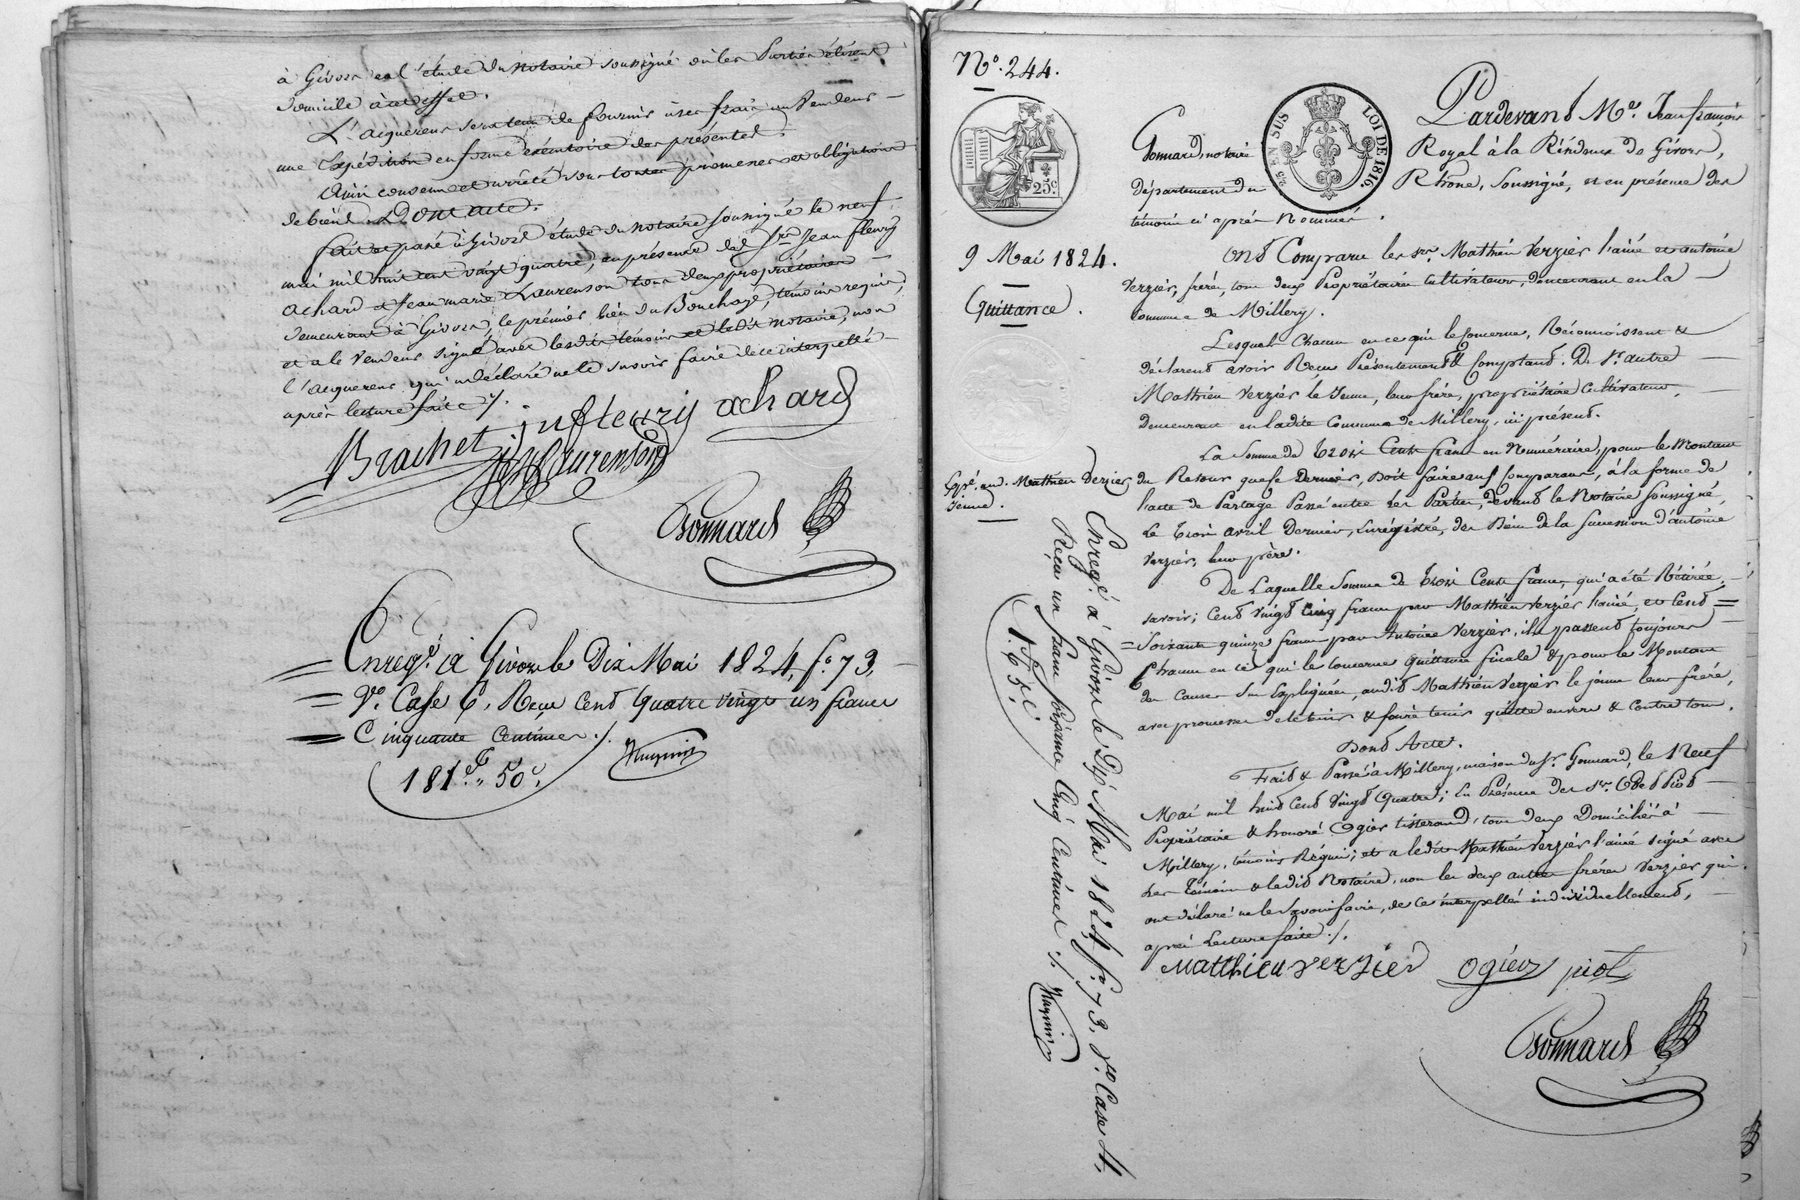 à Givors en l'étude du notaire soussigné où les Parties élisent
domicile à cet effet.
L'acquereur sera tenu de fournir à ses frais au Vendeur
une Expédition en forme exécutoire des présentes.
Ainsi convenu et arrêté sous toutes promesses et obligations
de bien. Dont acte.
Fait et passé à Givors étude du notaire soussigné le neuf
mai mil huit cent vingt quatre, en présence des Srs Jean fleury
achard & Jean marie Laurenson tous deux propriétaires
demeurant à Givors, le prémier lieu du Bouchage, témoins requis,
et a le Vendeur signé avec lesdits témoins et ledit notaire, non
l'acquereur qui a déclaré ne le savoir faire de ce interpellé
après lecture faite ./.
Brachet jn fleury achard
Laurenson
Gonnard
Enregé. à Givors le Dix Mai 1824, fo. 73,
Vo. Case 6, Reçu Cent Quatre vingt un francs
Cinquante Centimes ./.
181f., 50c.
No. 244.
25 EN SUS
LOI DE 1816.
25c.
9 Mai 1824.
Quittance.
Expé. au d. Mathieu Verzier
Jeune.
Pardevant Me. Jean françois
Gonnard, notaire Royal à la Résidence de Givors,
département du Rhône, Soussigné, et en présence des
témoins ci après Nommés.
Ont Comparu les srs. Mathieu Verzier l'ainé et antoine
Verzier, frères, tous deux Propriétaires Cultivateurs, demeurant en la
Commune de Millery.
Lesquels Chacun en ce qui le Concerne, Réconnoissent &
déclarent avoir Reçu Présentement & Comptant. De Sr. autre
Mathieu Verzier le Jeune, leur frère, propriétaire Cultivateur,
demeurant en ladite Commune de Millery, ici présent.
La Somme de trois Cents francs en Numéraire, pour le Montant
du Retour que ce Dernier, Doit faire aux Comparans, à la forme de
l'acte de Partage Passé entre les Parties, devant le Notaire Soussigné,
Le trois avril Dernier, Enrégistré, des Biens de la Succession d'antoine
Verzier, leur père.
De Laquelle Somme de trois Cents francs, qui a été Rétirée,
savoir; Cent Vingt Cinq francs par Mathieu Verzier l'ainé, et Cent
Soixante quinze francs par Antoine Verzier, ils passent toujours
Chacun en ce qui le concerne quittance finale & pour le Montant
des Causes Sus Expliquées, audit Mathieu Verzier le jeune leur frère,
avec promesse de le tenir & faire tenir quitte envers & Contre tous.
Dont Acte.
Fait & Passé à Millery, maison du Sr. Gonnard, le Neuf
Mai mil huit Cent Vingt Quatre; En Présence des srs. Piot
Propriétaire & honoré Ogier tisserand, tous deux Domiciliés à
Millery, témoins Réquis; et a ledit Mathieu Verzier l'ainé signé avec
les témoins & ledit Notaire, non les deux autres frères Verzier qui
ont déclaré ne le Savoir faire, de ce interpellés individuellement,
après Lecture faite ./.
Matthieu verzier ogier piot
Gonnard
Enregé. à Givors le Dix Mai 1824 fo. 73, Vo. Case 4,
Reçu un franc Soixante Cinq Centimes ./.
1f. 65c.